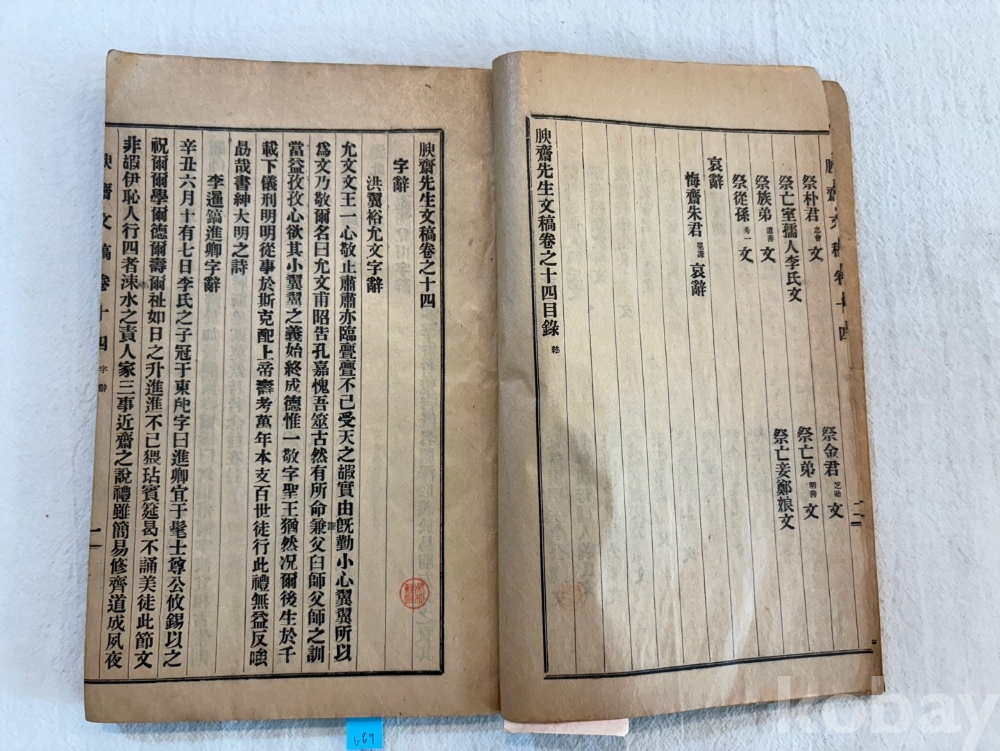 腴齋文稿卷十四
二
祭朴君 忠會 文
祭金君 芝勛 文
祭亡室孺人李氏文
祭亡弟 文
祭族弟 道善 文
祭亡妾鄭娘文
祭從孫 秀一 文
哀辭
悔齋朱君 哀辭
腴齋先生文稿卷之十四目錄 終
腴齋先生文稿卷之十四
字辭
洪翼裕允文字辭
允文文王一心敬止肅肅亦臨亹亹不已受天之嘏實由旣勤小心翼翼所以
爲文乃敬爾名曰允文甫昭告孔嘉愧吾筵古然有所命兼父曰師父師之訓
當益孜孜心欲其小翼翼之義始終成德惟一敬字聖王猶然况爾後生於千
載下儀刑明明從事於斯克配上帝壽考萬年本支百世徒行此禮無益反嗤
勗哉書紳大明之詩
李暹鎬進卿字辭
辛丑六月十有七日李氏之子冠于東阼字曰進卿宜于髦士尊公攸錫以之
祝爾爾學爾德爾壽爾祉如日之升進進不已猥玷賓筵曷不誦美徒此節文
非嘏伊恥人行四者涑水之責人家三事近齋之說禮雖簡易修齊道成夙夜
腴齋文稿卷十四 字辭
一
689
kobay